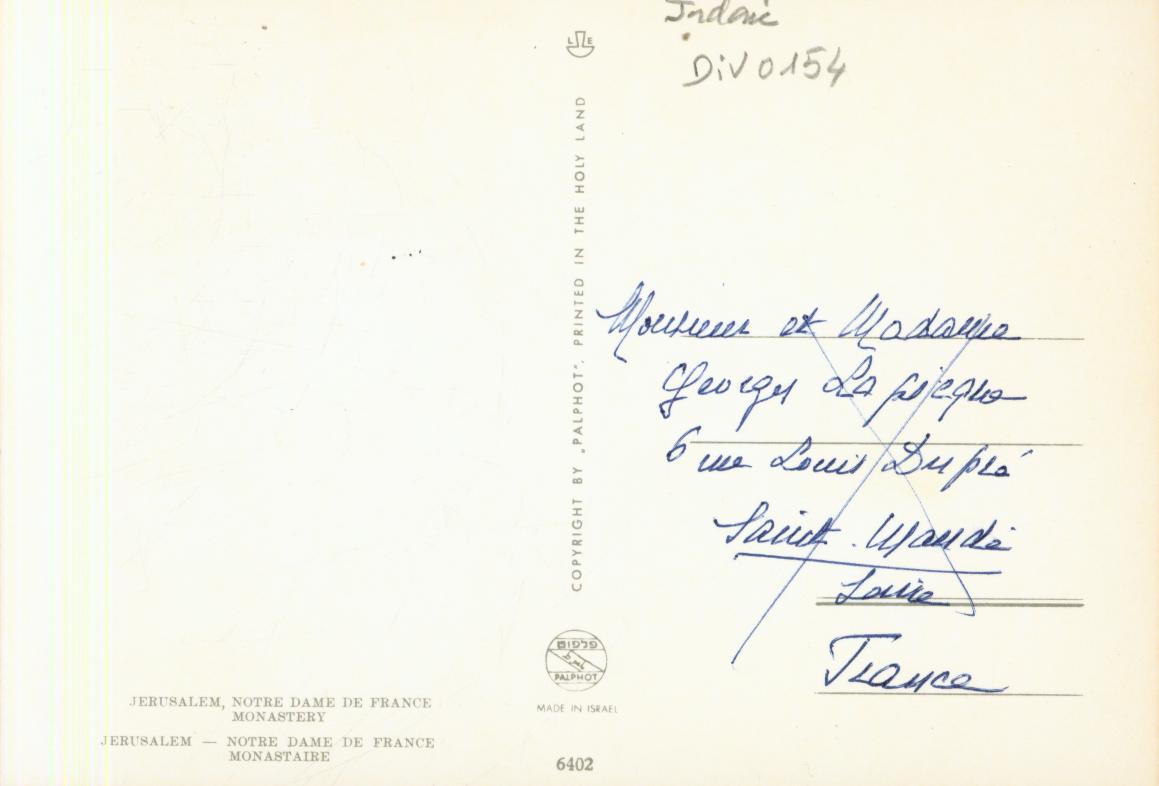 Jordanie
DIV 0154
L E
COPYRIGHT BY „PALPHOT", PRINTED IN THE HOLY LAND
Monsieur et Madame
Georges Lapicque
6 rue Louis Dupré
Saint-Mandé
Seine
France
פלפוט
PALPHOT
MADE IN ISRAEL
JERUSALEM, NOTRE DAME DE FRANCE
MONASTERY
JERUSALEM — NOTRE DAME DE FRANCE
MONASTAIRE
6402